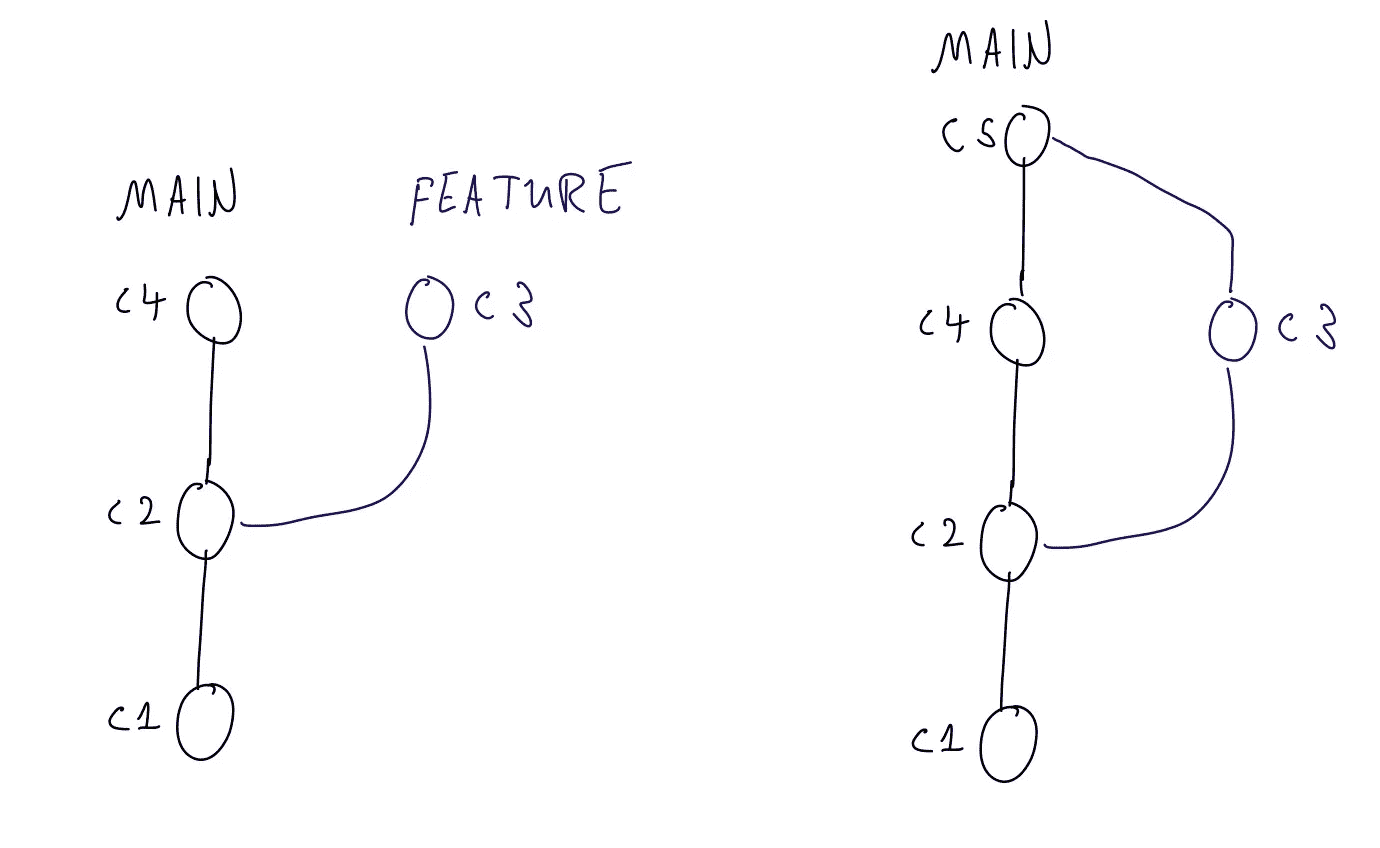 MAIN FEATURE
C4 C3
C2
C1
MAIN
C5
C4 C3
C2
C1